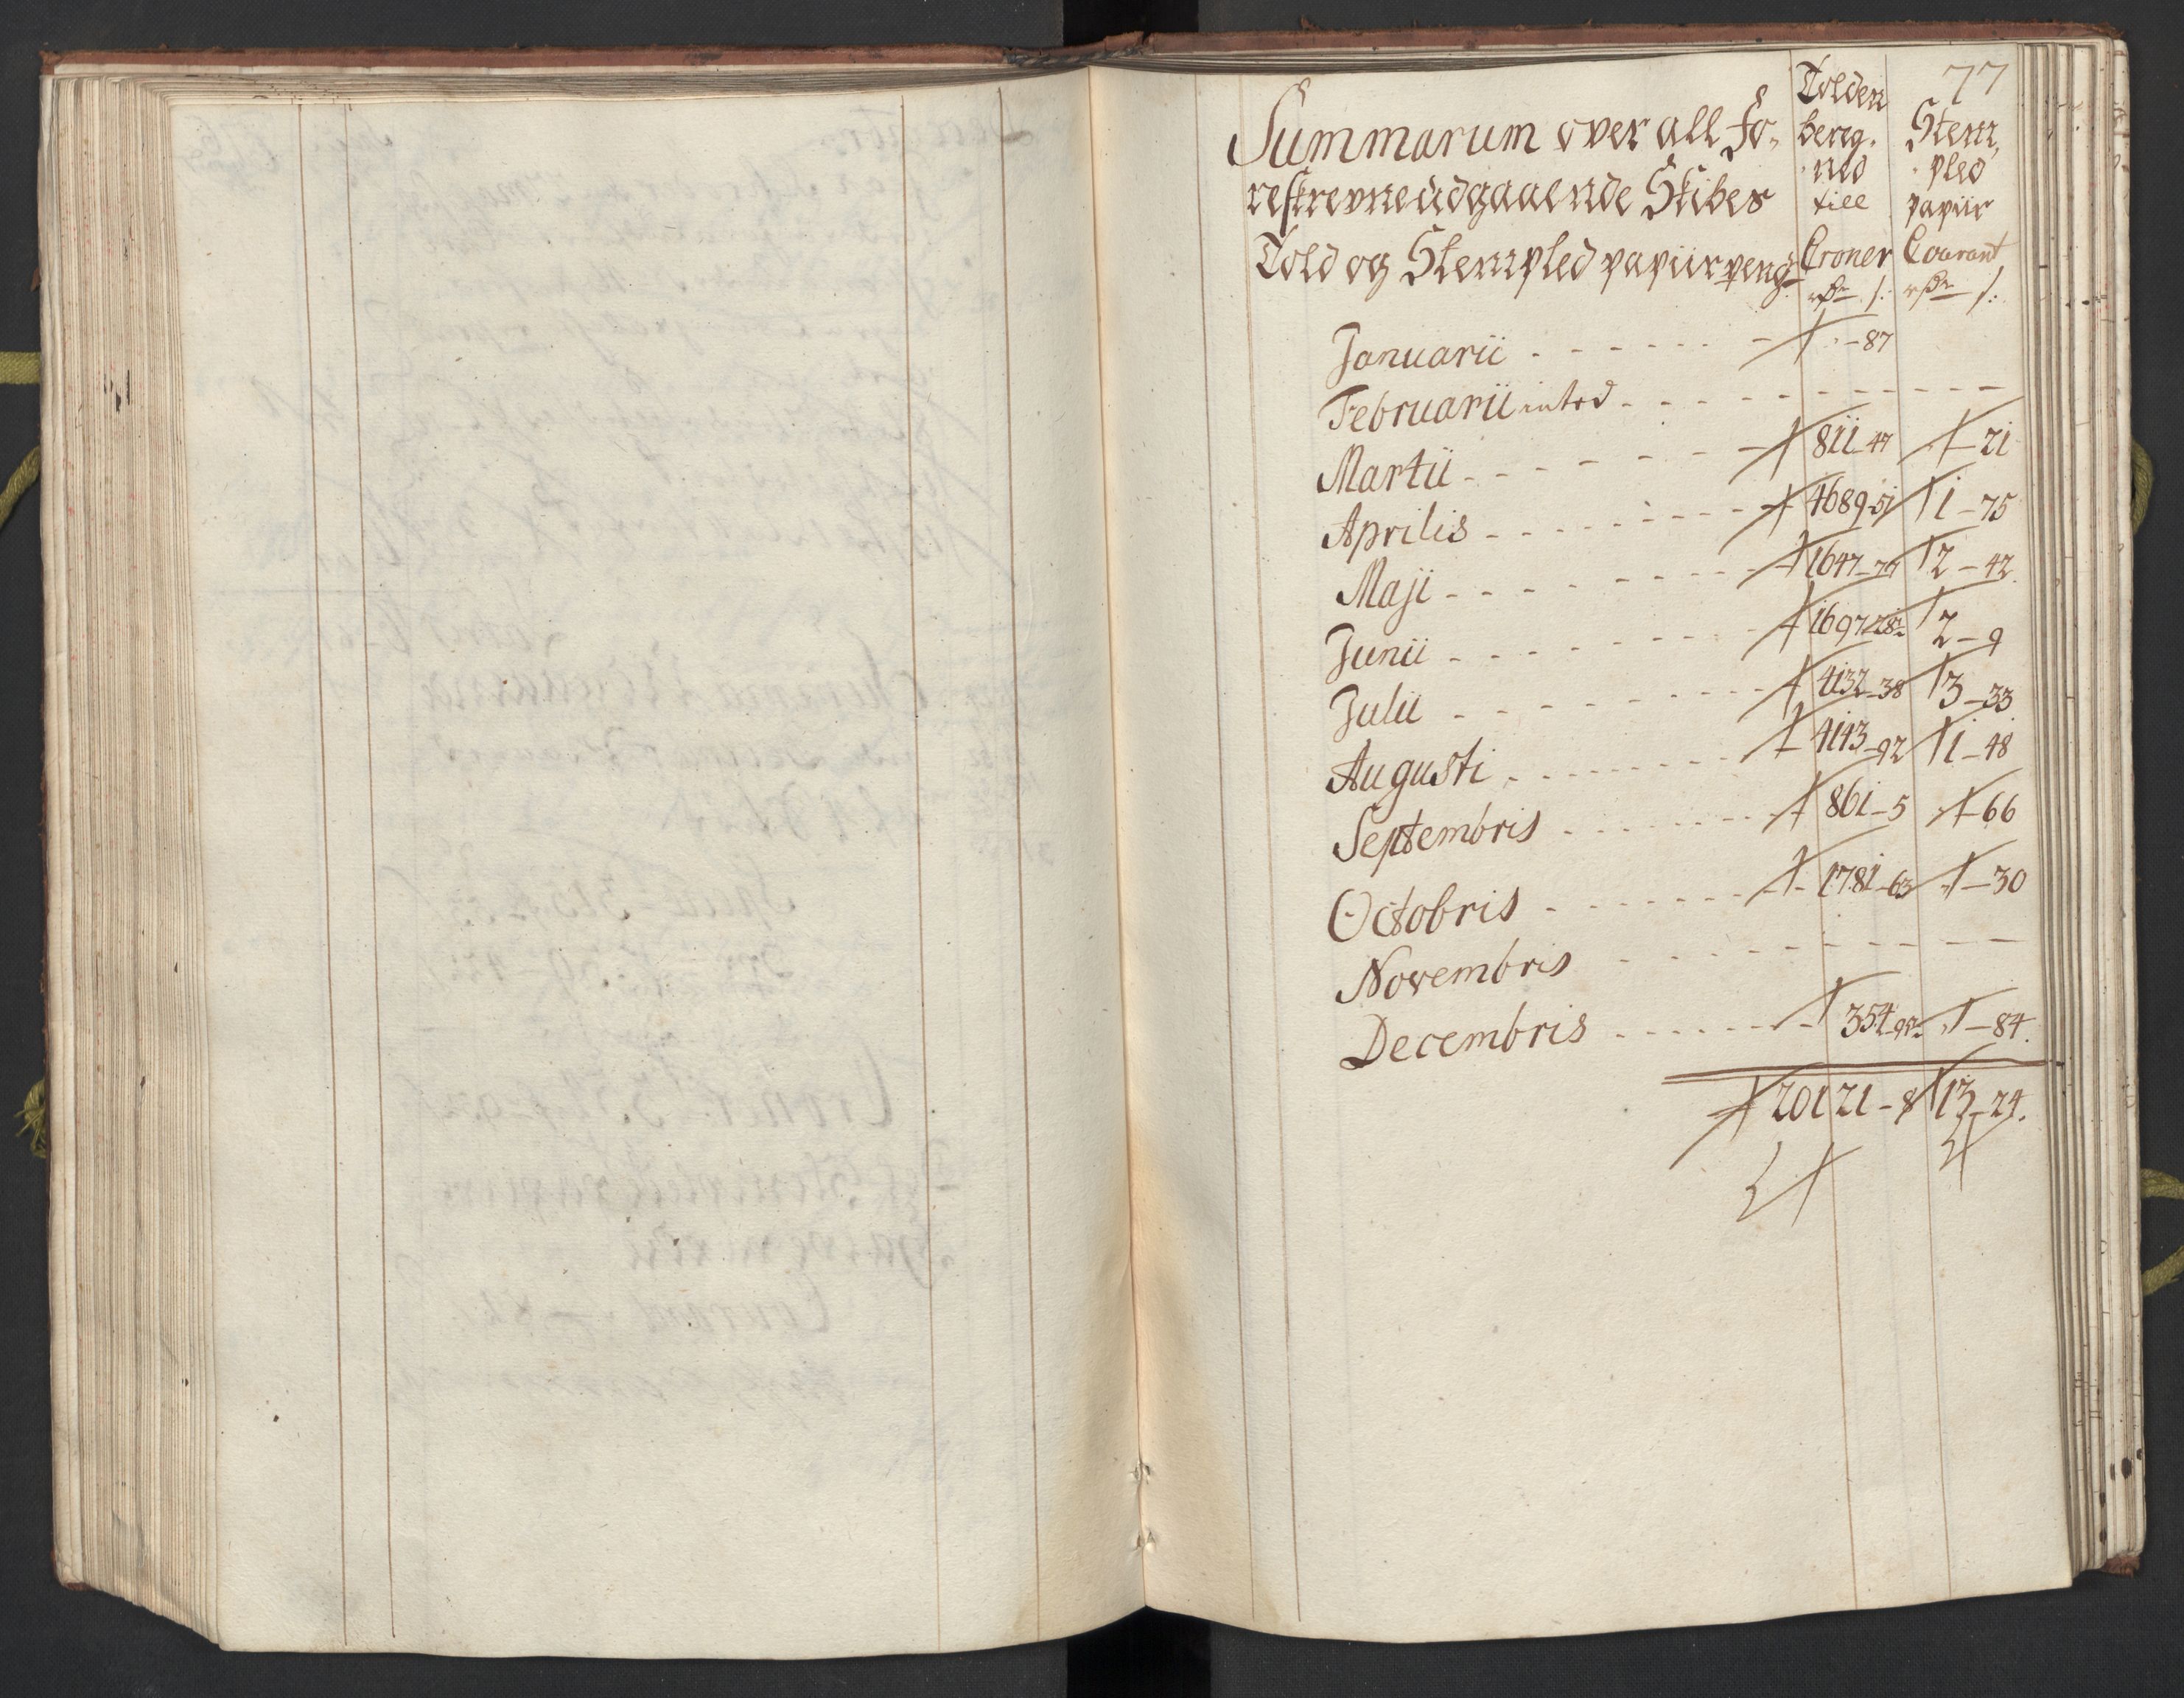 77
Summarum over all Fo-
reskrevne udgaaende Skibes
Told og Stempled papiir peng:
Tolden
bereg-
ned
till
Croner
rdr ſ:
Stem-
pled
papiir
Courant
rdr ſ:
Januarii - - - - - - - 87
Februarii inted - - - - - - - - -
Martii - - - - - - 811-47 - 21
Aprilis - - - - - - 4689-51 1-75
Maji - - - - - - 1647-70 2-42
Junii - - - - - - 1697-28 2-9
Julii - - - - - - 4132-38 3-33
Augusti - - - - - - 4143-92 1-48
Septembris - - - - - - 861-5 -66
Octobris - - - - - - 1781-63 -30
Novembris - - - - - - - - -
Decembris - - - - - - 354-92 -84.
20121-8 13-24.